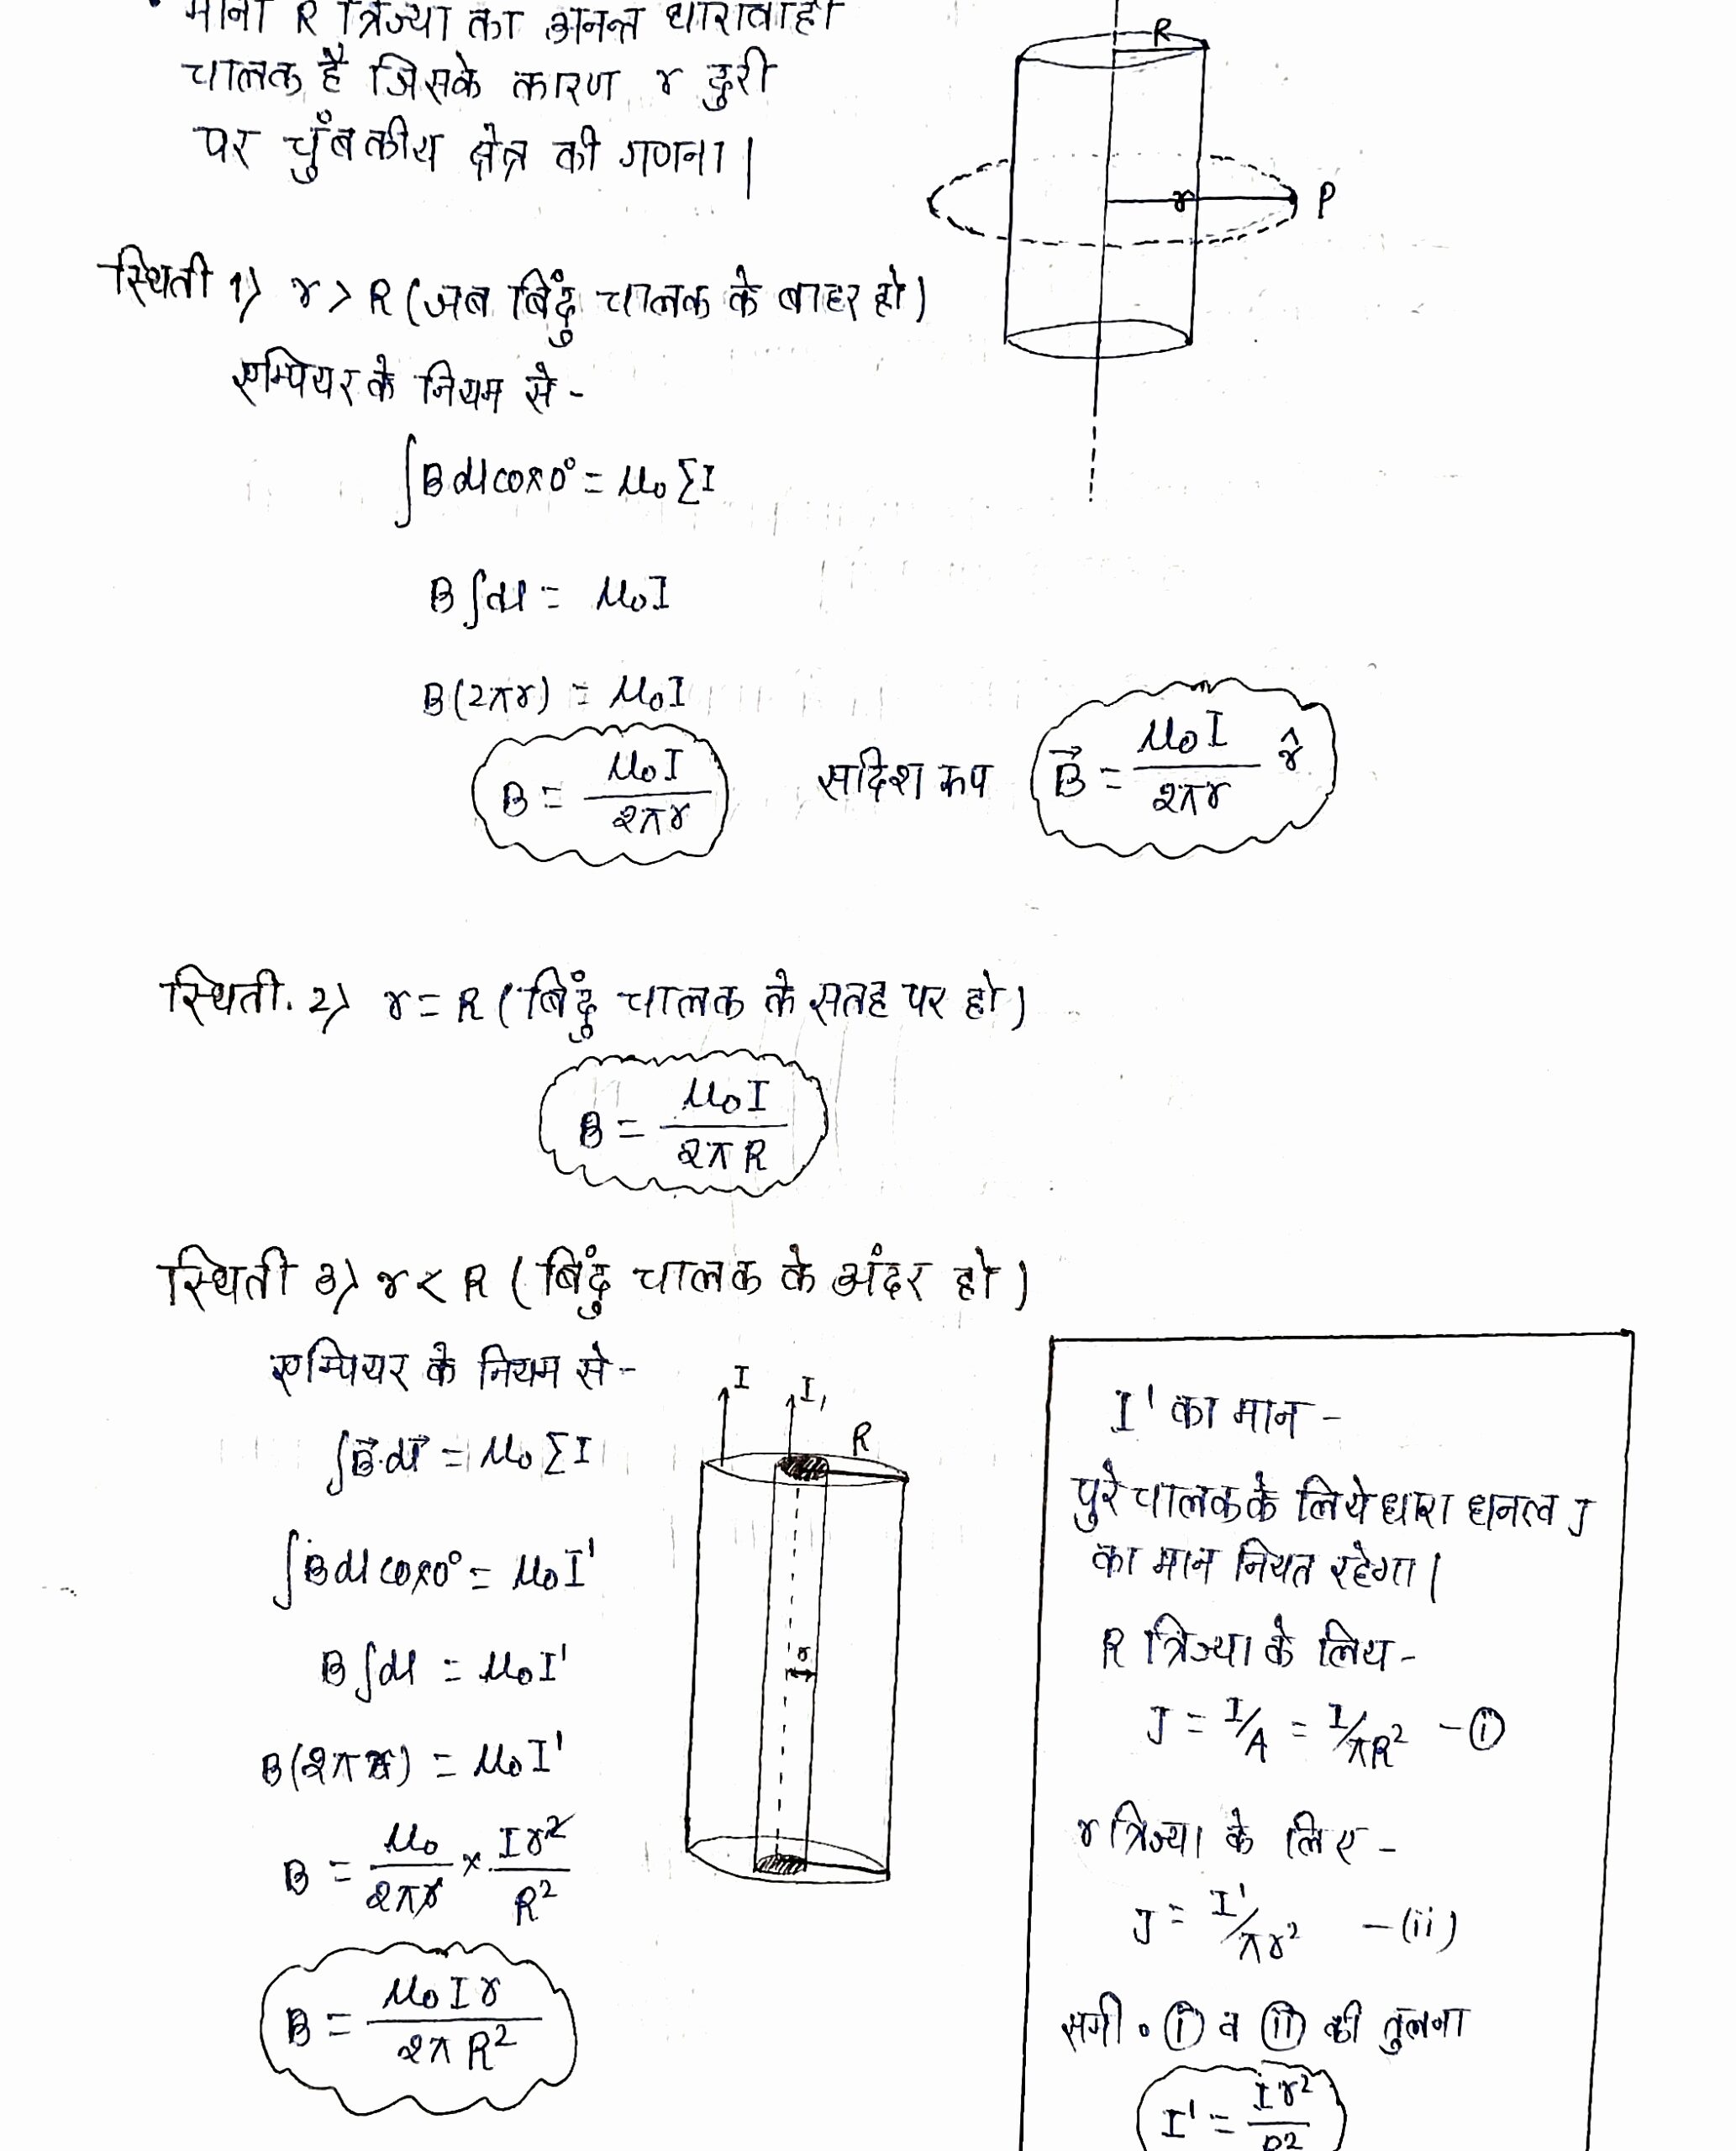 माना R त्रिज्या का अनन्त धारावाही
चालक है जिसके कारण r दुरी
पर चुँबकीय क्षेत्र की गणना|
R
r
P
स्थिती 1) r > R (जब बिंदु चालक के बाहर हो)
एम्पियर के नियम से -
∫B dl cos 0° = μ₀ ΣI
B ∫dl = μ₀I
B(2πr) = μ₀I
B = μ₀I / 2πr
सदिश रूप
B⃗ = μ₀I / 2πr r̂
स्थिती. 2) r = R (बिंदु चालक के सतह पर हो)
B = μ₀I / 2πR
स्थिती 3) r < R (बिंदु चालक के अंदर हो)
एम्पियर के नियम से -
∫B⃗·dl⃗ = μ₀ ΣI
∫B dl cos 0° = μ₀I'
B ∫dl = μ₀I'
B(2πr) = μ₀I'
B = μ₀ / 2πr × Ir² / R²
B = μ₀Ir / 2πR²
I
I₁
R
r
I' का मान -
पुरे चालक के लिये धारा धनत्व J
का मान नियत रहेगा|
R त्रिज्या के लिय -
J = I/A = I/πR² - (i)
r त्रिज्या के लिए -
J = I'/πr² - (ii)
समी० (i) व (ii) की तुलना
I' = Ir² / R²